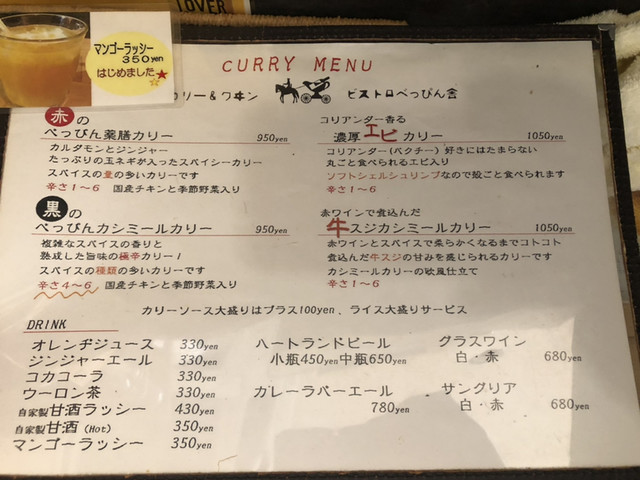 LOVER
マンゴーラッシー
350yen
はじめました
CURRY MENU
カリー&ワヰン ビストロべっぴん舎
赤の
べっぴん薬膳カリー 950yen
カルダモンとジンジャー
たっぷりの玉ネギが入ったスパイシーカリー
スパイスの量の多いカリーです
辛さ1~6 国産チキンと季節野菜入り
コリアンダー香る
濃厚エビカリー 1050yen
コリアンダー(パクチー)好きにはたまらない
丸ごと食べられるエビ入り
ソフトシェルシュリンプなので殻ごと食べられます
辛さ1~6
黒の
べっぴんカシミールカリー 950yen
複雑なスパイスの香りと
熟成した旨味の極辛カリー!
スパイスの種類の多いカリーです
辛さ4~6 国産チキンと季節野菜入り
赤ワインで煮込んだ
牛スジカシミールカリー 1050yen
赤ワインとスパイスで柔らかくなるまでコトコト
煮込んだ牛スジの甘みを感じられるカリーです
カシミールカリーの欧風仕立て
辛さ1~6
カリーソース大盛りはプラス100yen、ライス大盛りサービス
DRINK
オレンヂジュース 330yen
ジンジャーエール 330yen
コカコーラ 330yen
ウーロン茶 330yen
自家製甘酒ラッシー 430yen
自家製甘酒(Hot) 350yen
マンゴーラッシー 350yen
ハートランドビール
小瓶450yen中瓶650yen
カレーラバーエール
780yen
グラスワイン
白・赤 680yen
サングリア
白・赤 680yen